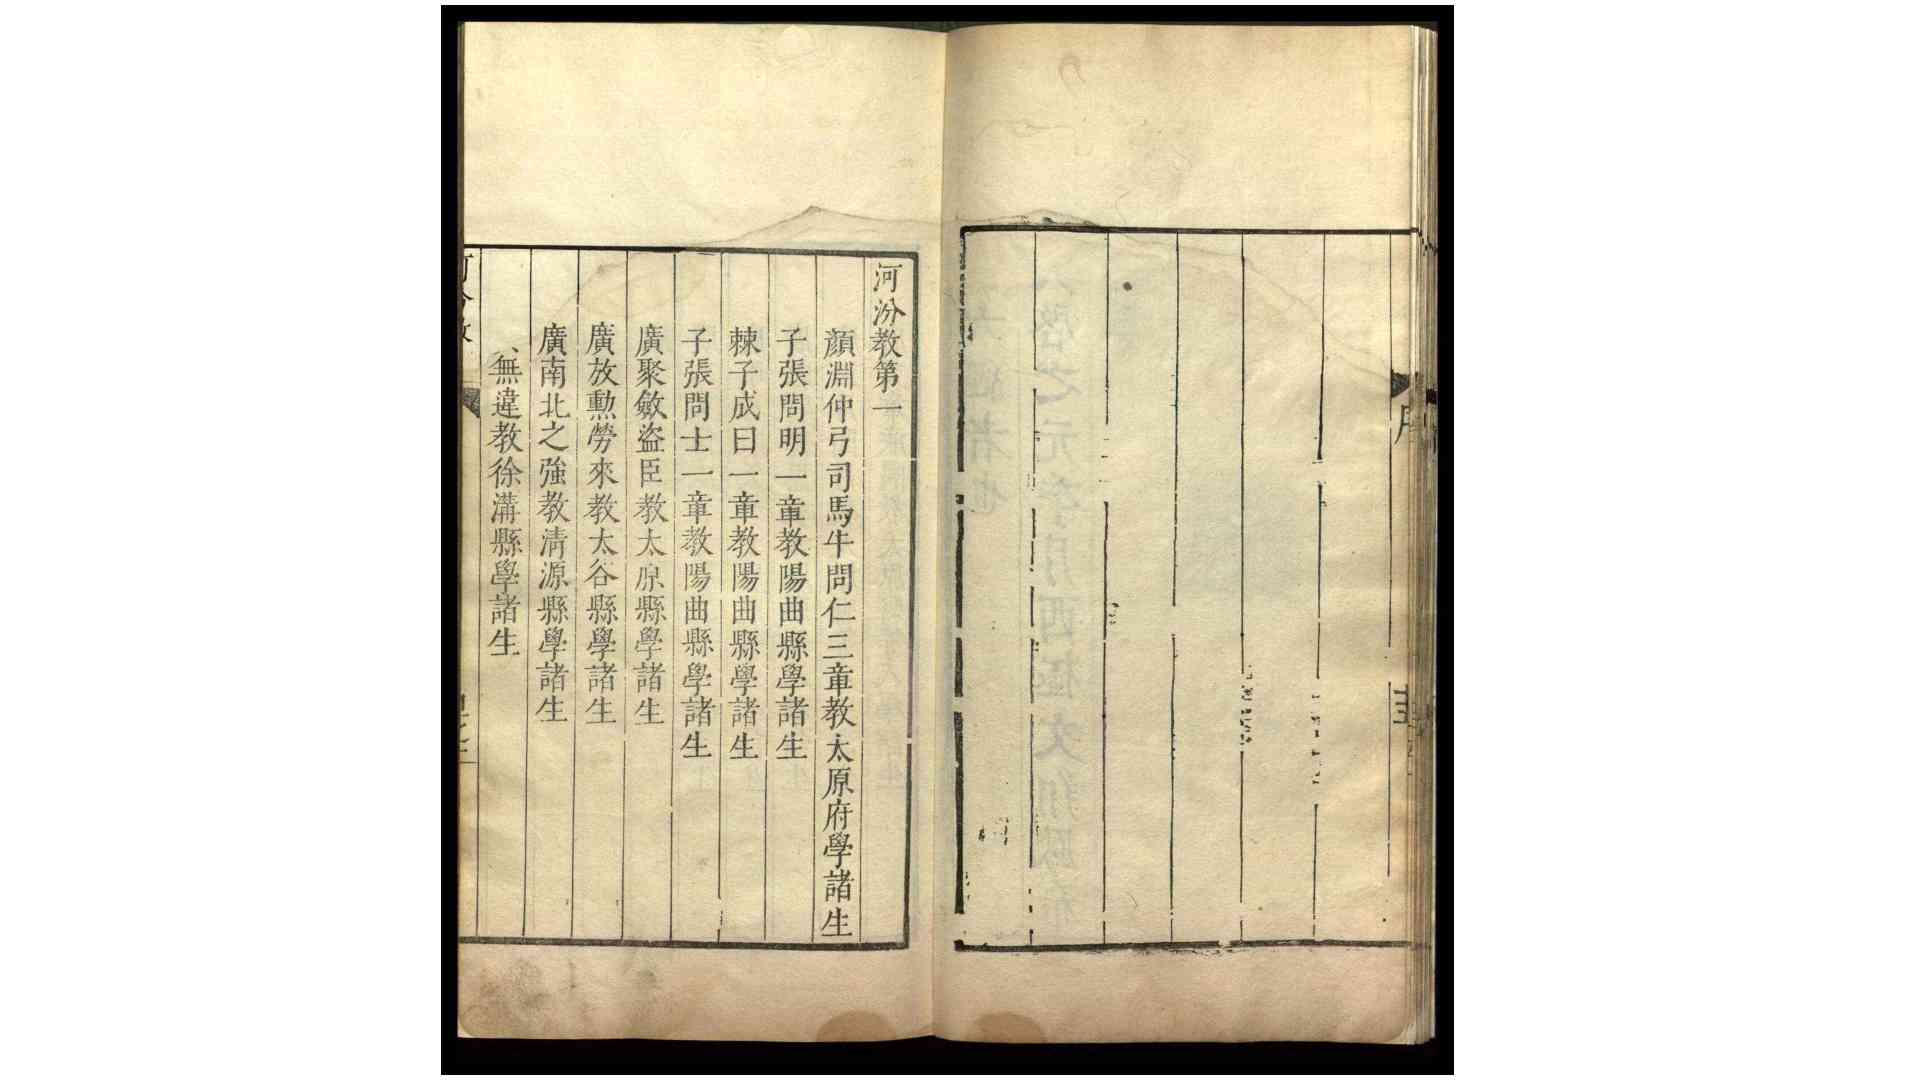 序
河汾教第一
顏淵仲弓司馬牛問仁三章教太原府學諸生
子張問明一章教陽曲縣學諸生
棘子成曰一章教陽曲縣學諸生
子張問士一章教陽曲縣學諸生
廣聚斂盜臣教太原縣學諸生
廣放勳勞來教太谷縣學諸生
廣南北之強教淸源縣學諸生
無違教徐溝縣學諸生